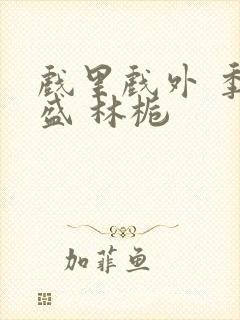 戏里戏外 季
盛 林栀
加菲鱼